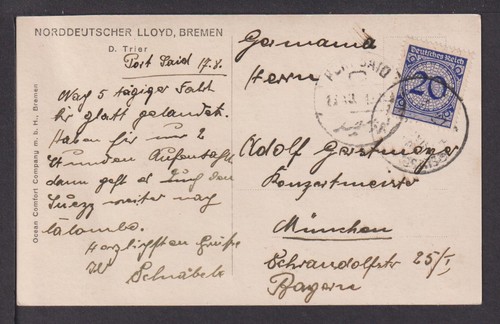 NORDDEUTSCHER LLOYD, BREMEN
D. Trier
Port Said 17.8.
Nach 5 tägiger Fahrt
hier glatt gelandet.
Haben hier nur 2
Stunden Aufenthalt
dann geht es durch den
Suez weiter nach
Colombo.
Herzlichsten Grüße
W Schnabel
Ocean Comfort Company m. b. H., Bremen
Germania
Herrn
Adolf Gerstmeyer
Konzertmeister
München
Schraudolfstr 25/I
Bayern
PORT SAID
Deutsches Reich
20